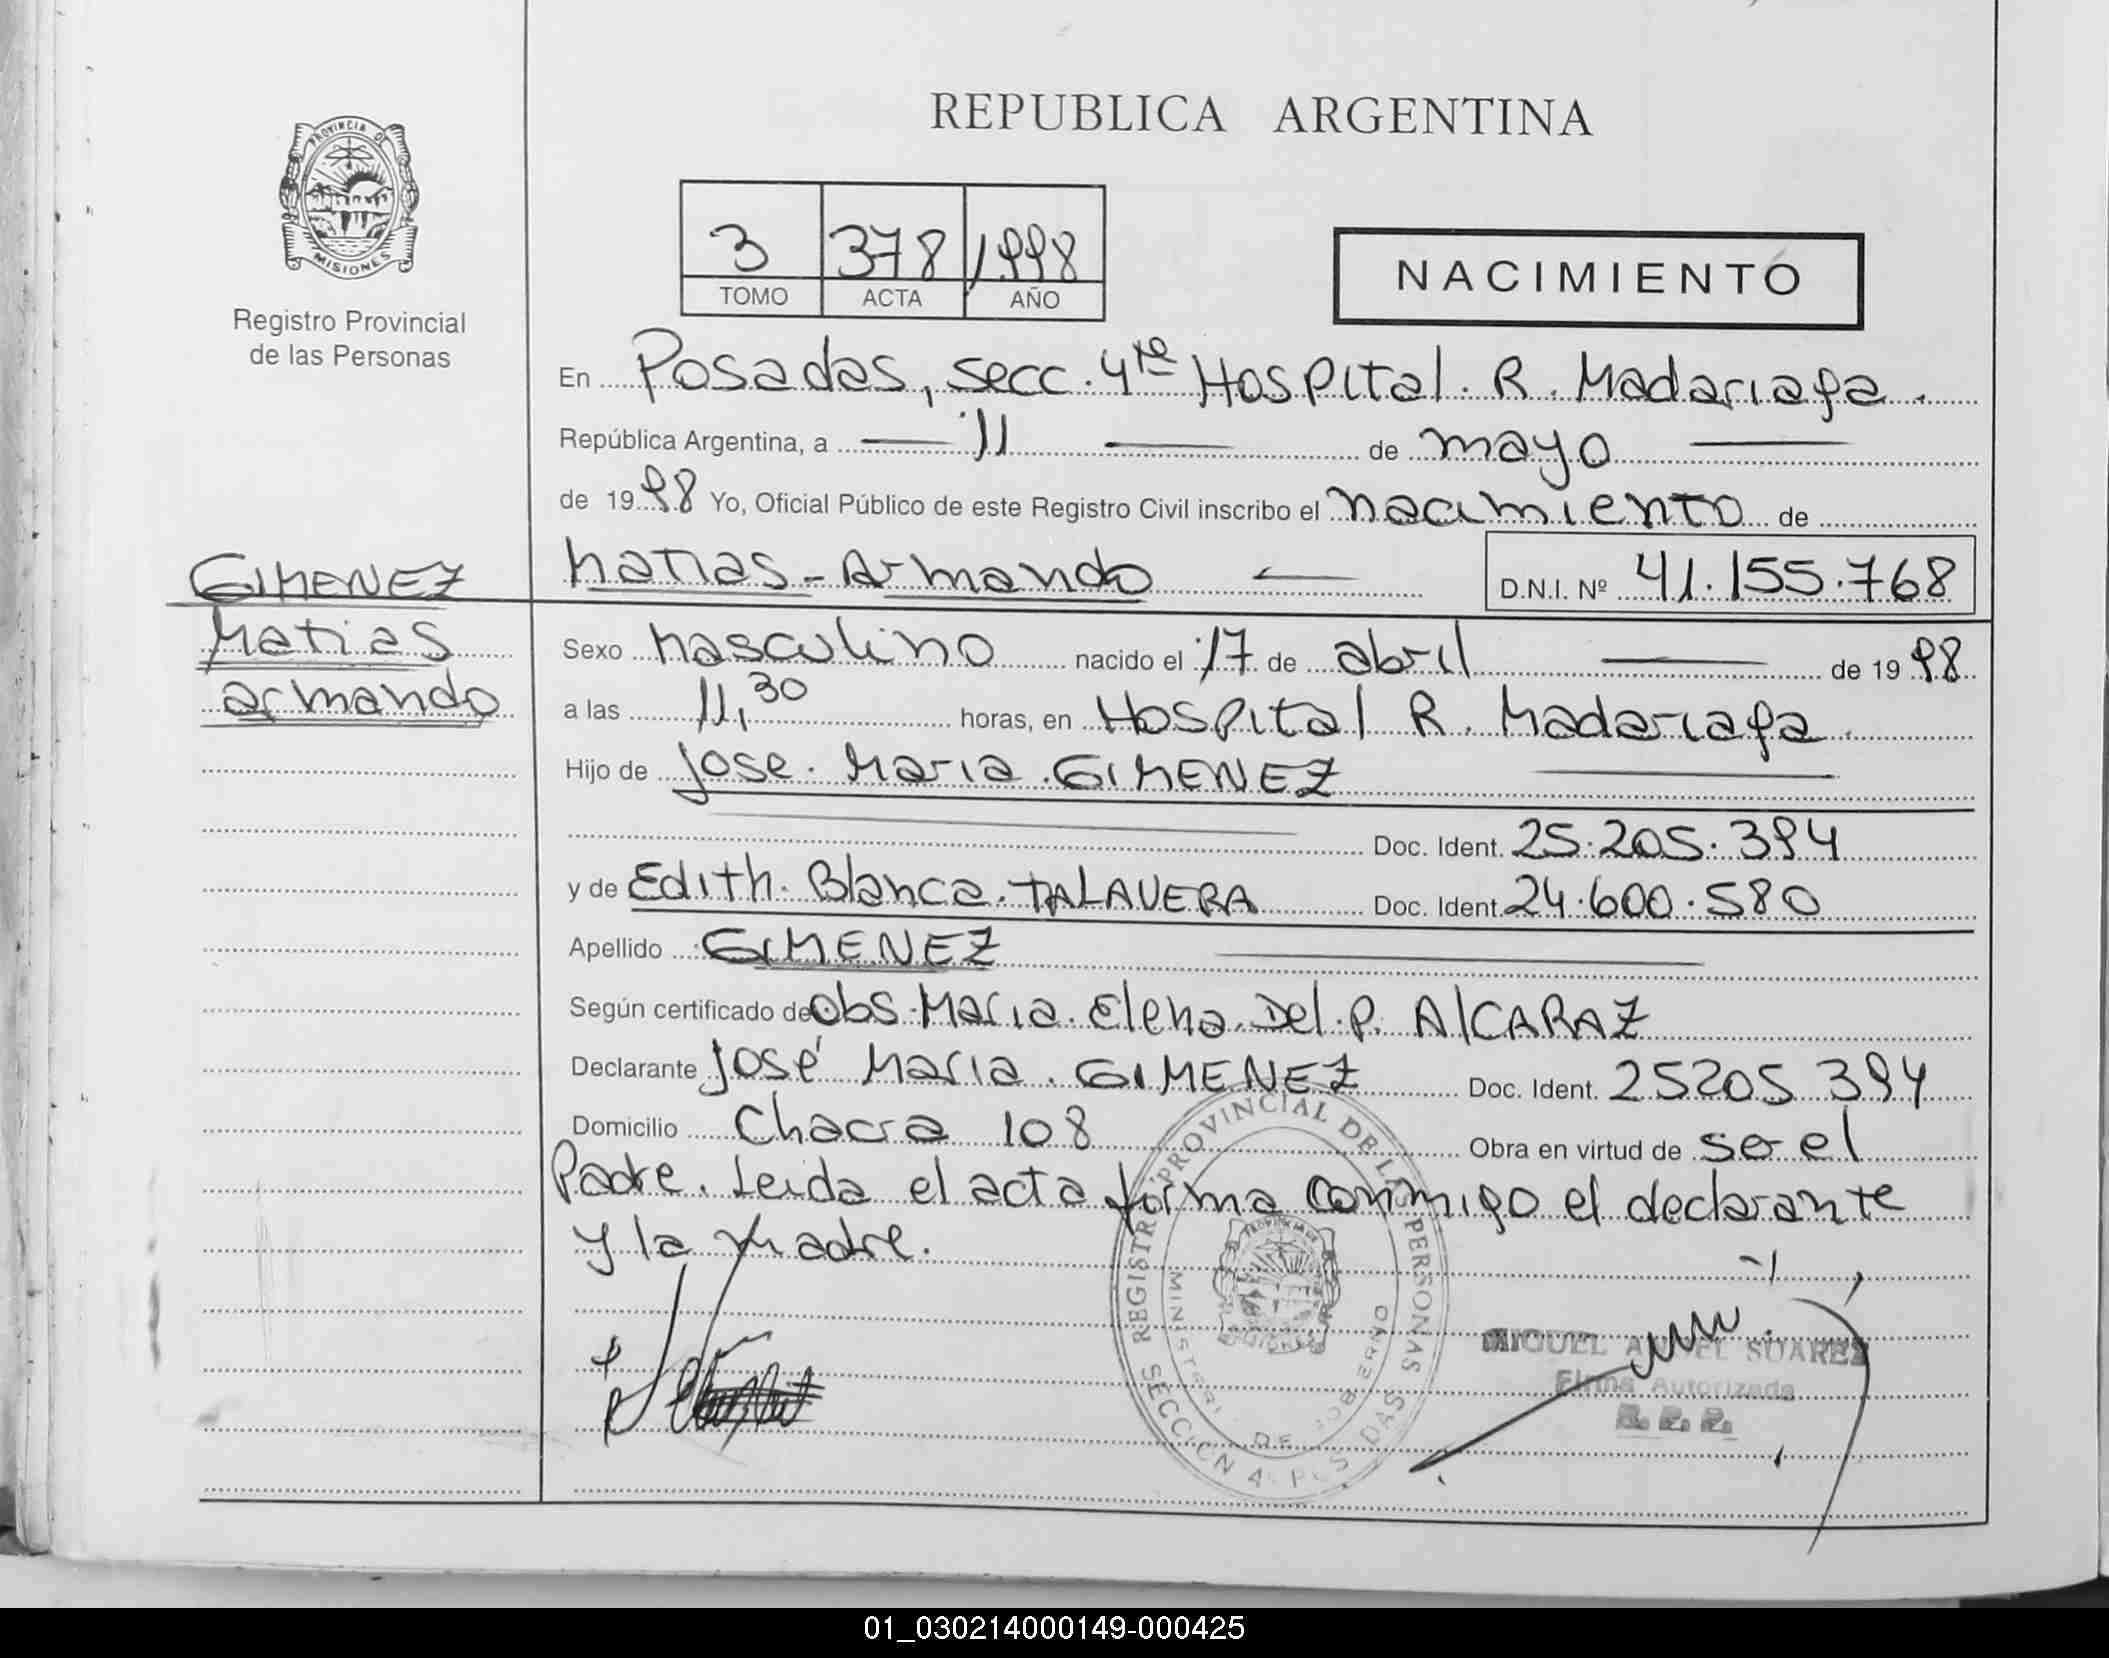 REPUBLICA ARGENTINA
PROVINCIA DE
MISIONES
Registro Provincial
de las Personas
3 378 1.998
TOMO ACTA AÑO
NACIMIENTO
En Posadas, secc. 4ta Hospital R. Madariaga.
República Argentina, a 11 de mayo
de 1998 Yo, Oficial Público de este Registro Civil inscribo el nacimiento de
GIMENEZ
Matias
armando
Matias - Armando D.N.I. Nº 41.155.768
Sexo Masculino nacido el 17 de abril de 1998
a las 11,30 horas, en Hospital R. Madariaga.
Hijo de Jose Maria GIMENEZ
Doc. Ident. 25.205.394
y de Edith Blanca TALAVERA Doc. Ident. 24.600.580
Apellido GIMENEZ
Según certificado de Obs. Maria Elena Del P. AlCARAZ
Declarante José Maria GIMENEZ Doc. Ident. 25205394
Domicilio Chacra 108 Obra en virtud de ser el
Padre. Leida el acta firma conmigo el declarante
y la Madre.
REGISTRO PROVINCIAL DE LAS PERSONAS
MINISTERIO DE GOBIERNO
SECCION 4ª POSADAS
MIGUEL ANGEL SUAREZ
Firma Autorizada
01_030214000149-000425